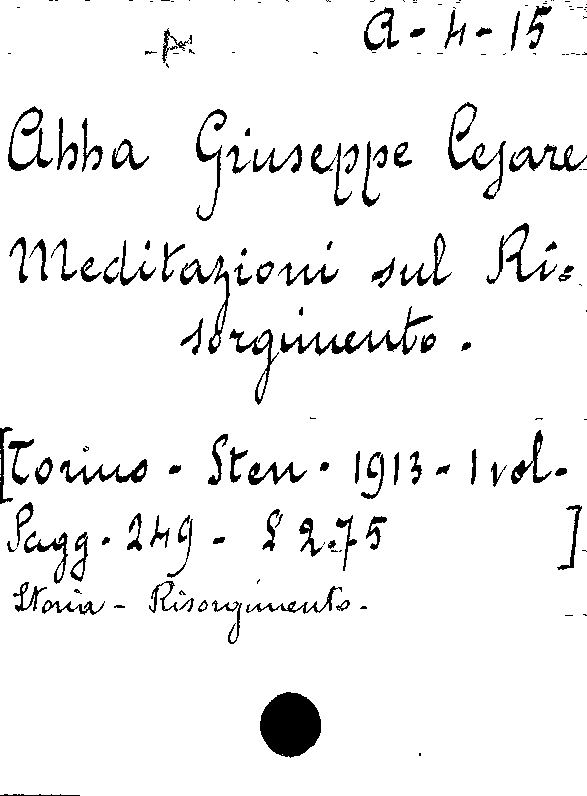 A - 4 - 15
Abba Giuseppe Cesare
Meditazioni sul Ri=
sorgimento.
[Torino - Sten - 1913 - 1 vol -
Pagg - 249 - £ 2.75 ]
Storia - Risorgimento -